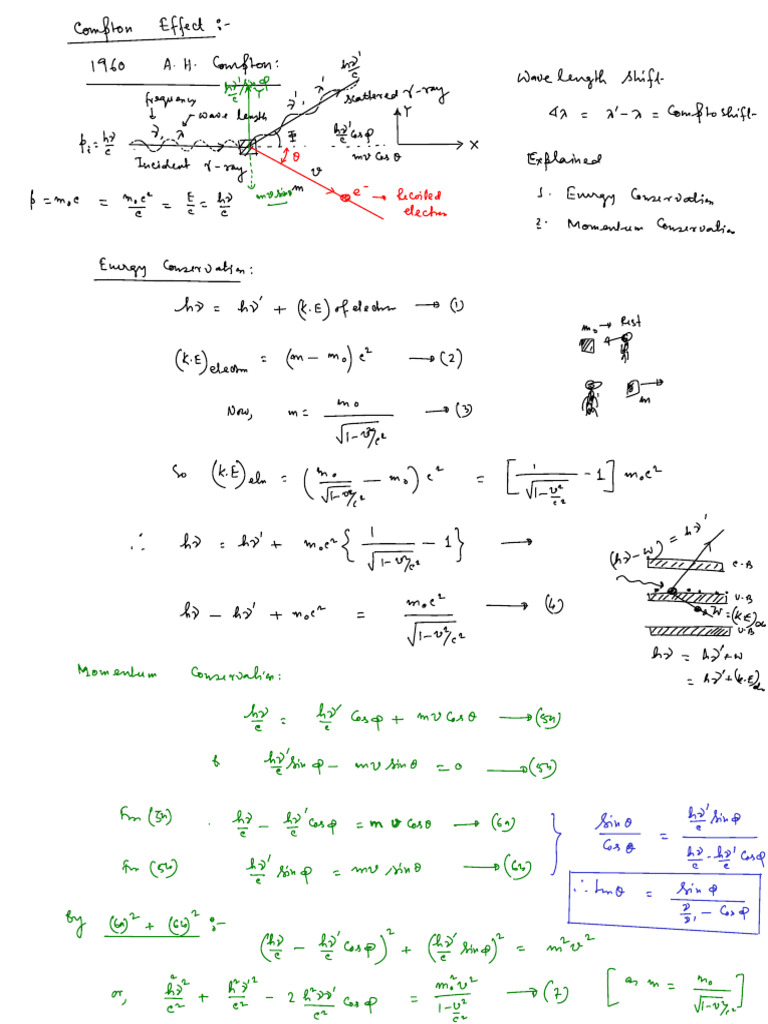 Compton Effect :-
1960 A. H. Compton:
frequency
ν, λ → wave length
p_i = hν/c
Incident γ-ray
hν'/c sinφ
Y
ν', λ'
hν'/c
scattered γ-ray
Φ
hν'/c cosφ
θ
mv cosθ
Y
X
v
m
mv sinθ
e⁻ → Recoiled electron
p = m₀c = m₀c²/c = E/c = hν/c
Wave length shift-
Δλ = λ' - λ = Compto shift-
Explained
1. Energy Conservation
2. Momentum Conservation
Energy Conservation:
hν = hν' + (K.E) of electron → (1)
(K.E)electron = (m - m₀) c² → (2)
Now, m = m₀/√(1 - v²/c²) → (3)
m₀ → Rest
m
So (K.E)eln = (m₀/√(1 - v²/c²) - m₀) c² = [1/√(1 - v²/c²) - 1] m₀c²
∴ hν = hν' + m₀c² {1/√(1 - v²/c²) - 1} →
hν - hν' + m₀c² = m₀c²/√(1 - v²/c²) → (4)
(hν - W) = hν'
C.B
V.B
W = (K.E)
V.B
hν = hν' + W
= hν' + (K.E)
Momentum Conservation:
hν/c = hν'/c cosφ + mv cosθ → (5a)
& hν'/c sinφ - mv sinθ = 0 → (5b)
Fm (5a) . hν/c - hν'/c cosφ = mv cosθ → (6a)
Fm (5b) hν'/c sinφ = mv sinθ → (6b)
sinθ/cosθ = (hν'/c sinφ)/(hν/c - hν'/c cosφ)
∴ tanθ = sinφ/(ν/ν' - cosφ)
By (6a)² + (6b)² :-
(hν/c - hν'/c cosφ)² + (hν'/c sinφ)² = m²v²
or, h²ν²/c² + h²ν'²/c² - 2 h²νν'/c² cosφ = m₀²v²/(1 - v²/c²) → (7) [as m = m₀/√(1 - v²/c²)]